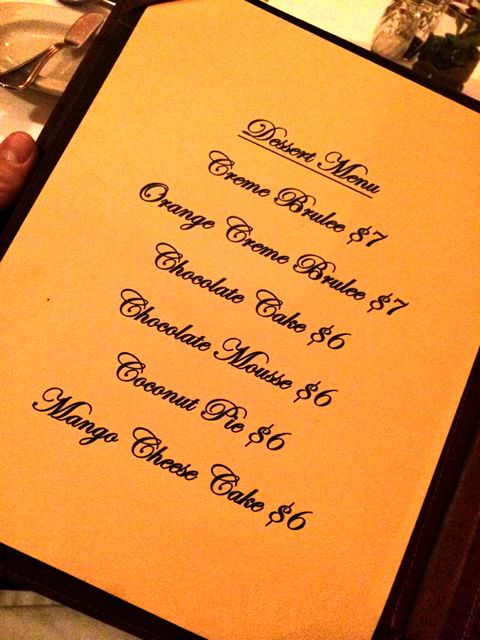 Dessert Menu
Creme Brulee $7
Orange Creme Brulee $7
Chocolate Cake $6
Chocolate Mousse $6
Coconut Pie $6
Mango Cheese Cake $6